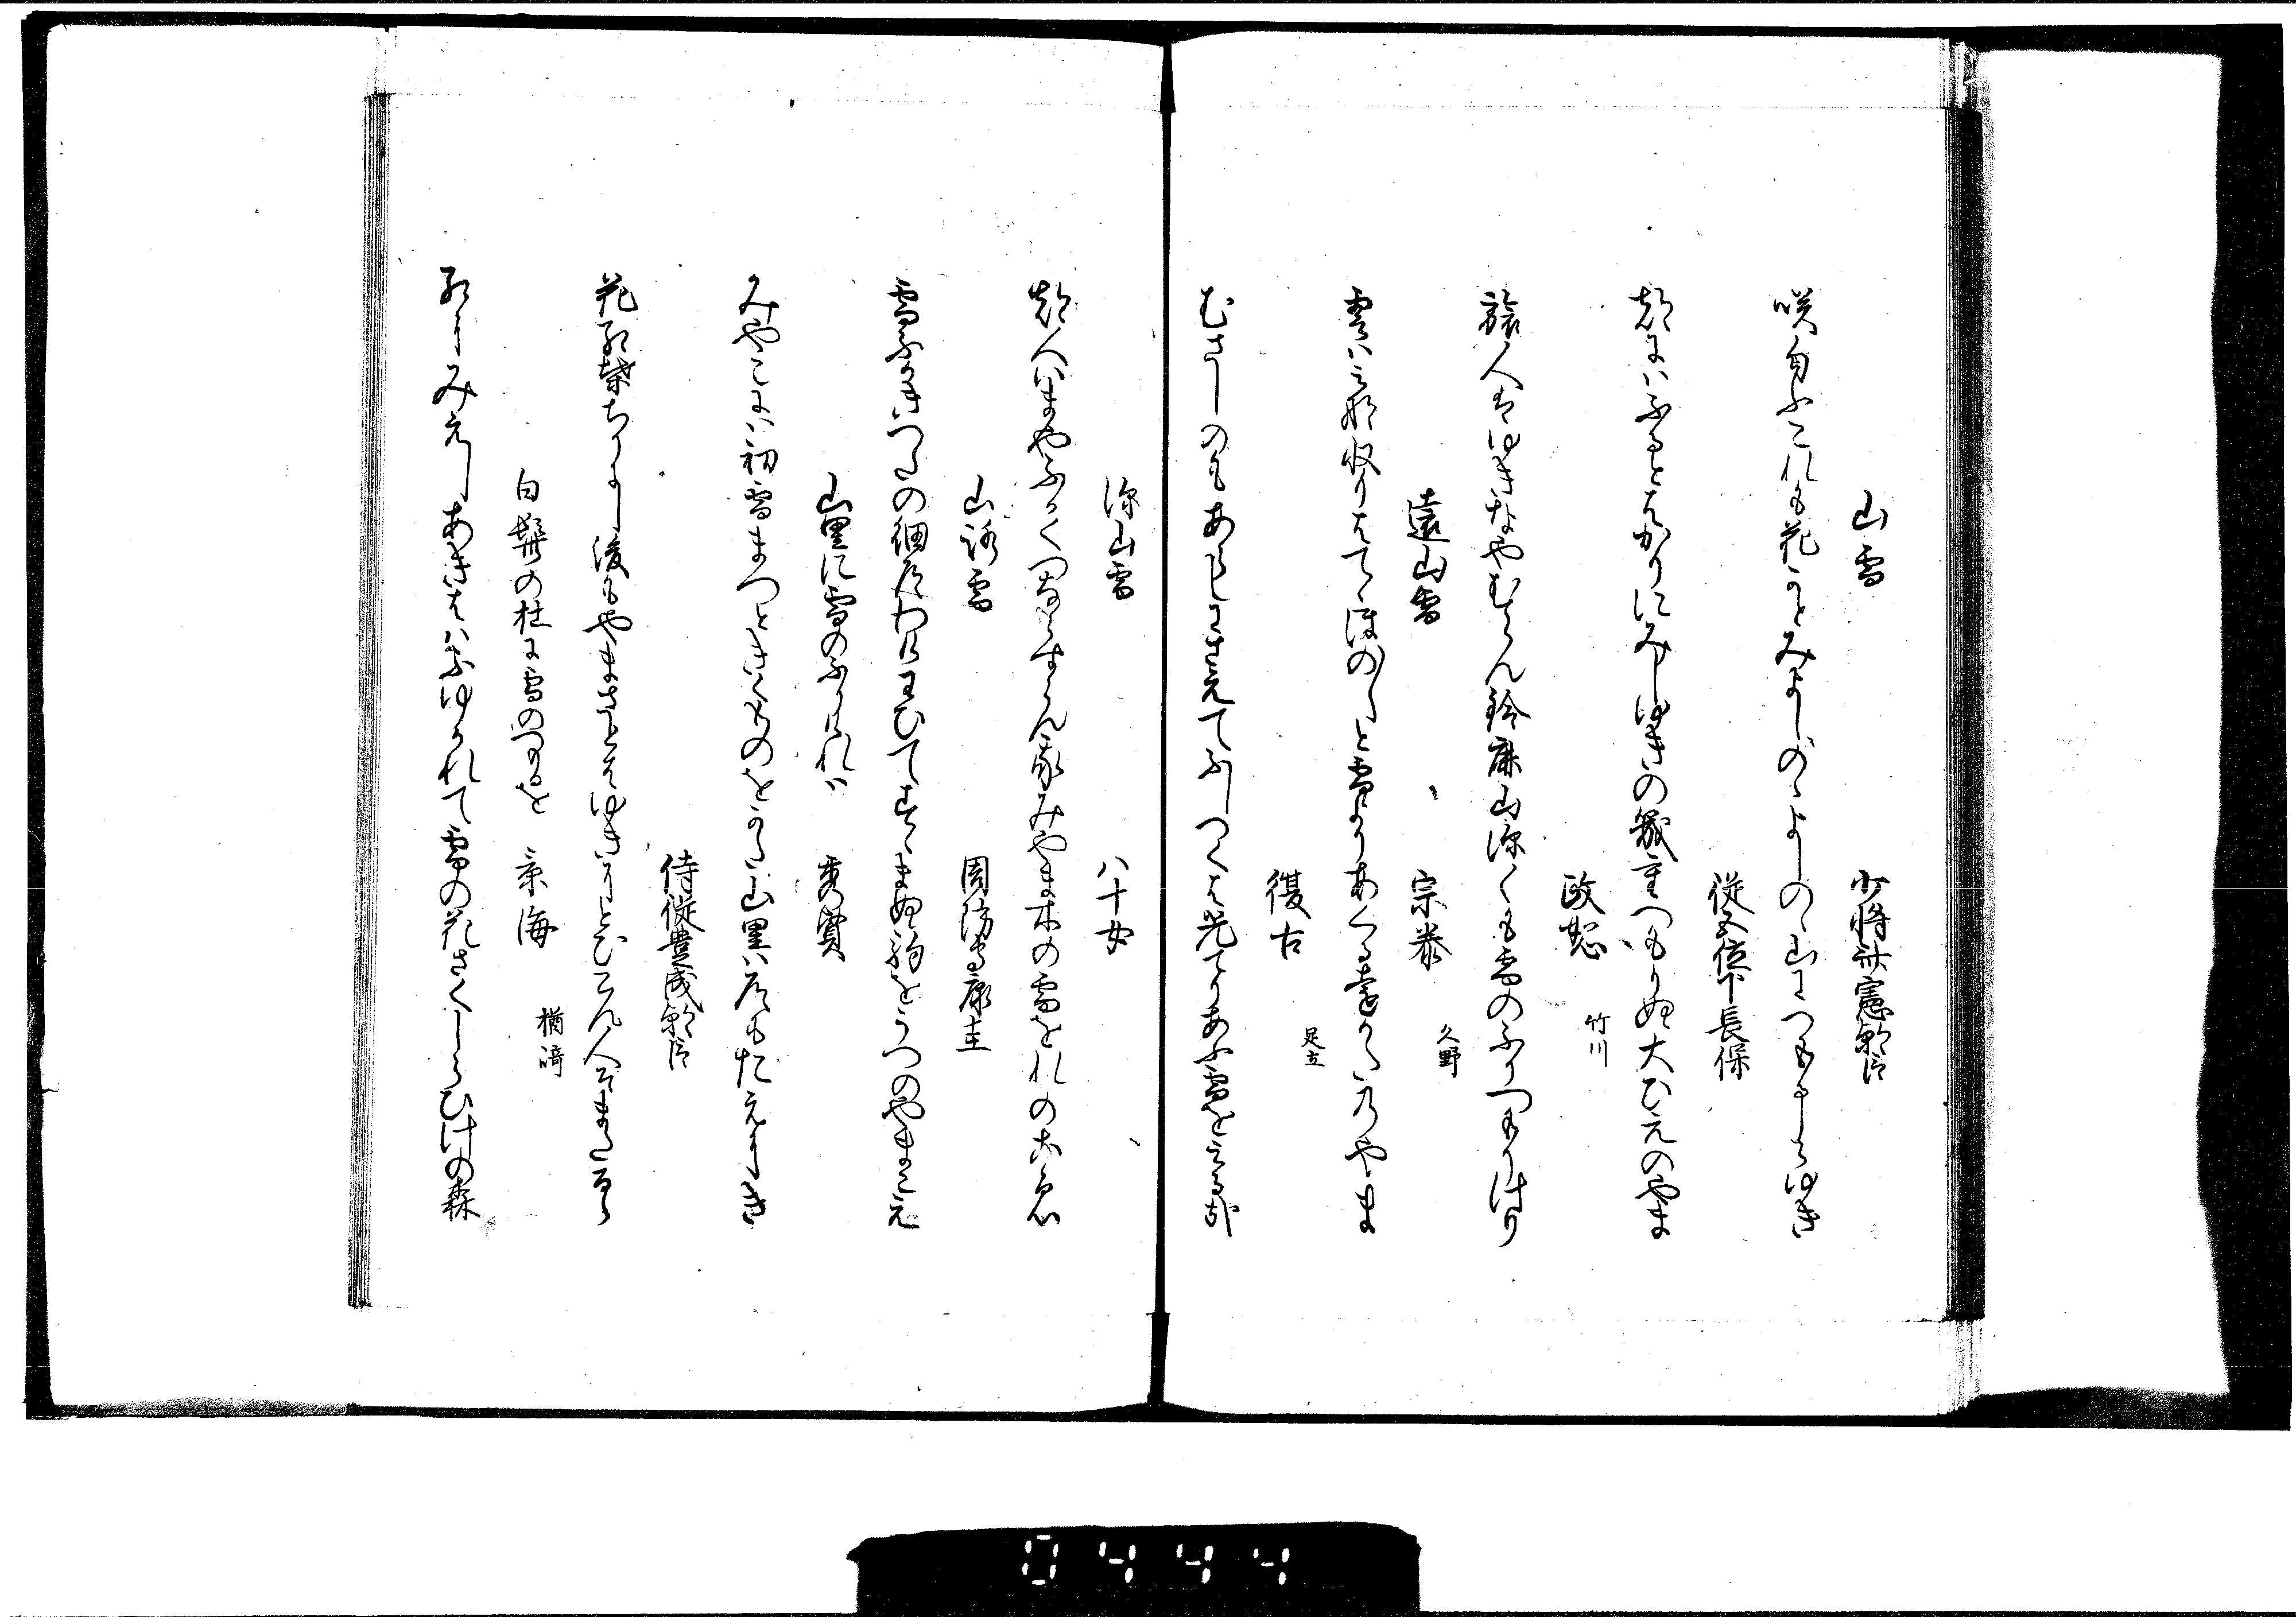 山雪
少将斉憲朝臣
咲匂ふこれも花かとみよしのゝよしのゝ山につもるしらゆき
従五位下長保
都にはふるとはかりにみしゆきの幾重つもりぬ大ひえのやま
政恕 竹川
旅人はゆきなやむらん鈴鹿山深くも雪のふりつもりけり
遠山雪
宗泰 久野
雲はみな収りはてゝほの〳〵と雪よりあくる遠かたのやま
復古 足立
むさしのもあらしにさえてふしつくは光てりあふ雪をみる哉
深山雪
八十女
都人いまやふかくつもるらん みやま木の雪をれのこゑ
山路雪
周防守康圭
雪ふかきつたの細道わけわひてすゝまぬ駒をうつのやまこえ
山里に雪のふりけれは
秀賢
みやこには初雪まつときくものをかた山里は道もたえにき
侍従豊成朝臣
花紅葉ちりにし後もやまさとはゆきにとひこん人そまたるゝ
白鬚の杜に雪のつもるを
景海 楢崎
紅にみえしあきははふゆかれて雪の花さくしらひけの森
0444